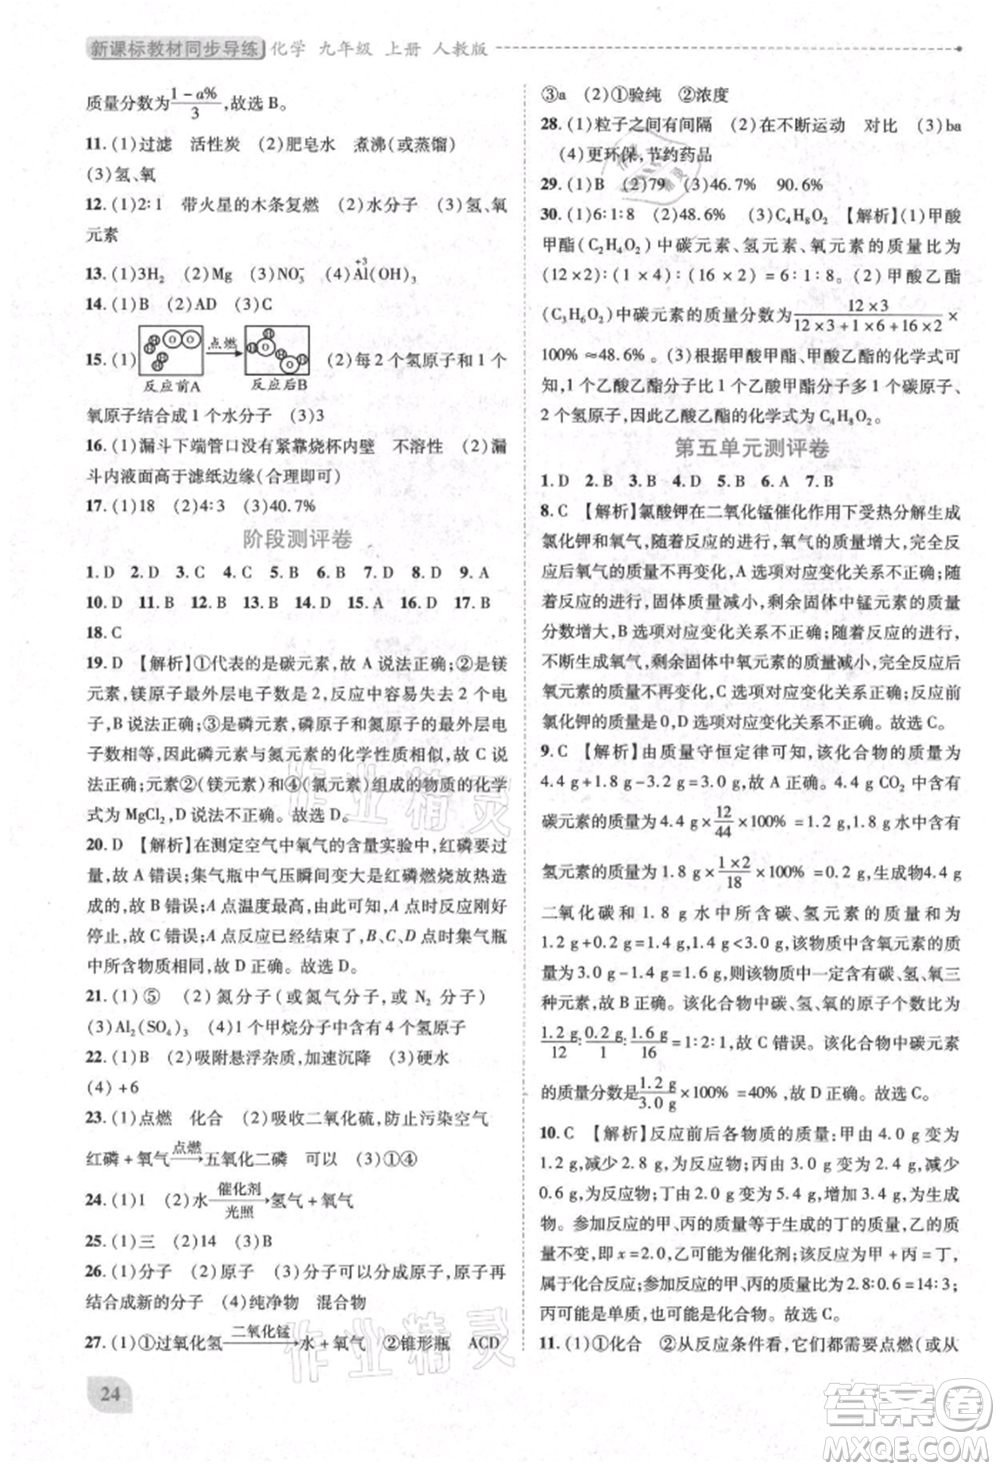 新课标教材同步导练 化学 九年级 上册 人教版
质量分数为(1-a%)/3,故选 B。
11.(1)过滤 活性炭 (2)肥皂水 煮沸(或蒸馏)
(3)氢、氧
12.(1)2∶1 带火星的木条复燃 (2)水分子 (3)氢、氧
元素
13.(1)3H₂ (2)Mg (3)NO₃⁻ (4)Al(+3)(OH)₃
14.(1)B (2)AD (3)C
15.(1) 反应前A 点燃 反应后B (2)每 2 个氢原子和 1 个
氧原子结合成 1 个水分子 (3)3
16.(1)漏斗下端管口没有紧靠烧杯内壁 不溶性 (2)漏
斗内液面高于滤纸边缘(合理即可)
17.(1)D (2)4∶3 (3)40.7%
阶段测评卷
1.D 2.D 3.D 4.D 5.C 6.B 7.B 8.D 9.A
10.D 11.B 12.B 13.D 14.B 15.A 16.D 17.B
18.C
19.D 【解析】①代表的是碳元素,故 A 说法正确;②是镁
元素,镁原子最外层电子数是 2,反应中容易失去 2 个电
子,B 说法正确;③是磷元素,磷原子和氮原子的最外层电
子数相等,因此磷元素与氮元素的化学性质相似,故 C 说
法正确;元素②(镁元素)和④(氯元素)形成的物质的化学
式为 MgCl₂,故 D 说法错误。故选 D。
20.D 【解析】在测定空气中氧气的含量实验中,红磷要过
量,故 A 错误;集气瓶中压强瞬间增大是红磷燃烧放热造
成的,故 B 错误;A 点温度最高,不能说明 A 点时反应刚好
停止,故 C 错误;A 点时红磷还有剩余,B、C、D 点集气瓶中
中所含物质种类相同,故 D 正确。故选 D。
21.(1)⑤ (2)氮分子(或氮气分子,或 N₂ 分子)
(3)Al₂(SO₄)₃ (4)1 个甲烷分子中有 4 个氢原子
22.(1)B (2)吸附悬浮杂质,加速沉降 (3)硬水
(4)+6
23.(1)点燃 化合 (2)吸收二氧化硫,防止污染空气
红磷+氧气 —点燃→ 五氧化二磷 可以 (3)①④
24.(1)1 (2)水 —催化剂/光照→ 氢气+氧气
25.(1)三 (2)14 (3)B
26.(1)分子 (2)原子 (3)分子可以分成原子,原子再
结合成新的分子 (4)纯净物 混合物
27.(1)①过氧化氢 —二氧化锰→ 水+氧气 ②锥形瓶 ACD
24
③a (2)①验纯 ②浓度
28.(1)粒子之间有间隔 (2)在不断运动 对比 (3)ba
(4)更环保,节约药品
29.(1)B (2)79 (3)46.7% 90.6%
30.(1)6∶1∶8 (2)48.6% (3)C₄H₈O₂ 【解析】(1)甲酸
甲酯(C₂H₄O₂)中碳元素、氢元素、氧元素的质量比为
(12×2)∶(1×4)∶(16×2)=6∶1∶8。(2)甲酸乙酯
(C₃H₆O₂)中碳元素的质量分数为 (12×3)/(12×3+1×6+16×2) ×
100% ≈48.6%。(3)根据甲酸甲酯、甲酸乙酯的化学式可
知,1 个乙酸乙酯分子比 1 个乙酸甲酯分子多 1 个碳原子、
2 个氢原子,因此乙酸乙酯的化学式为 C₄H₈O₂。
第五单元测评卷
1.D 2.B 3.B 4.D 5.B 6.A 7.B
8.C 【解析】氯酸钾在二氧化锰催化作用下受热分解生成
氯化钾和氧气。随着反应进行,氧气的质量增大,完全反
应后氧气的质量不再变化,A 选项对应变化关系正确;随
着反应的进行,固体质量减小,剩余固体中锰元素的质量
分数增大,B 选项对应变化关系不正确;随着反应的进行,
不断生成氧气,剩余固体中氧元素的质量减小,完全反应前
氧元素的质量不变化,C 选项对应变化关系正确;反应前
氯化钾的质量是 0,D 选项对应变化关系不正确。故选 C。
9.C 【解析】由质量守恒定律可知,该化合物的质量为
4.4 g+1.8 g-3.2 g=3.0 g,故 A 正确。4.4 g CO₂ 中含有
碳元素的质量为 4.4 g×12/44×100%=1.2 g,1.8 g 水中含有
氢元素的质量为 1.8 g×(1×2)/18×100%=0.2 g
二氧化碳和 1.8 g 水中所含碳、氢元素的质量和为
1.2 g+0.2 g=1.4 g<3.0 g,则该物质中含氧元素的质量为
3.0 g-1.2 g-0.2 g=1.6 g,说明该化合物中含有碳、氢、氧
三种元素,故 B 正确。该化合物中碳、氢、氧的原子个数比为
1.2 g/12∶0.2 g/1∶1.6 g/16=1∶2∶1,故 C 错误。该化合物中碳元素
的质量分数是 1.2 g/3.0 g×100%=40%,故 D 正确。故选 C。
10.C 【解析】反应前后各物质的质量:甲由 4.0 g 变为
1.2 g,是反应物;丙由 1.6 g 变为 1.0 g,质量
减少,为反应物;丁由 2.8 g 变为 6.2 g,质量增加,为生成
物。参加反应的甲、丙的质量等于生成丁的质量,乙的质
量不变,即 x=2.0,乙可能为催化剂;该反应为甲+丙=丁,
属于化合反应;参加反应的甲、丙的质量比为 2.8∶0.6=14∶3,
丙可能是单质,也可能是化合物。故选 C。
11.(1)①化合 ②从反应条件看,它们都是点燃(或从
作业精灵
作业精灵
答案圈
MXQE.COM